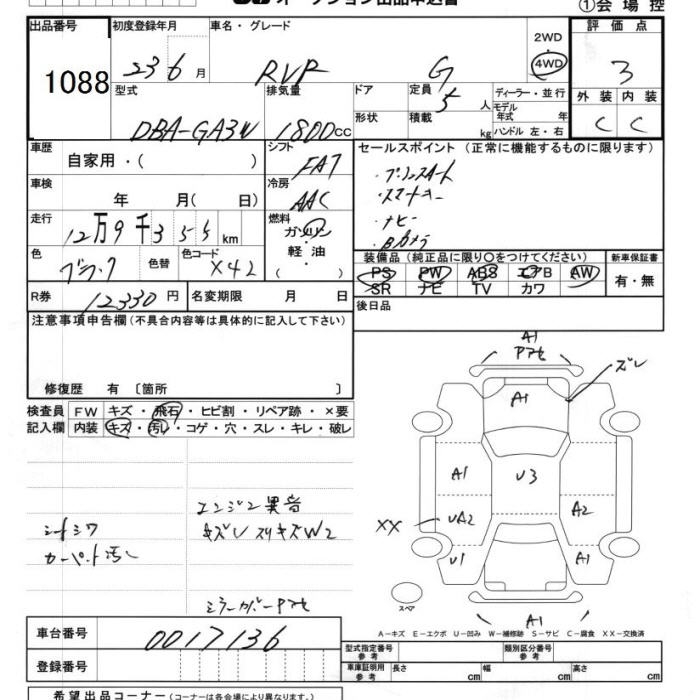 オークション出品申込書
①会場控
出品番号 初度登録年月 車名・グレード 2WD 評価点
1088 23 6月 RVR G 4WD 3
型式 排気量 ドア 定員 5人 ディーラー・並行 外装 内装
DBA-GA3W 1800cc 形状 積載 kg モデル年式 年 ハンドル 左・右 C C
車歴 自家用・( ) シフト FAT セールスポイント (正常に機能するものに限ります)
・プッシュスタート
・スマートキー
車検 年 月( 日) 冷房 AAC
・ナビ
・Bカメラ
走行 12万9千355km 燃料 ガソリン 軽油 ・( )
色 ブラック 色替 色コード X42
装備品(純正品に限り〇をつけてください) 新車保証書
PS PW ABS エアB AW 有・無
SR ナビ TV カワ
R券 12330円 名変期限 月 日 後日品
注意事項申告欄(不具合内容等は具体的に記入して下さい)
修復歴 有 〔箇所 〕
検査員 FW キズ・飛石・ヒビ割・リペア跡・×要
記入欄 内装 キズ・汚レ・コゲ・穴・スレ・キレ・破レ
エンジン異音
シートシワ キズU スリキズW2
カーペット汚レ
ミラーカバーアセ
A1
アセ
ズレ
A1
A1 U3
XX UA2 A2
U1 A1
スペア
A1
A-キズ E-エクボ U-凹み W-補修跡 S-サビ C-腐食 XX-交換済
車台番号 0017136
型式指定番号 参考 類別区分番号 参考
登録番号 車庫証明用 参考 長さ cm 幅 cm 高さ cm
希望出品コーナー(コーナーは各会場により異なります)